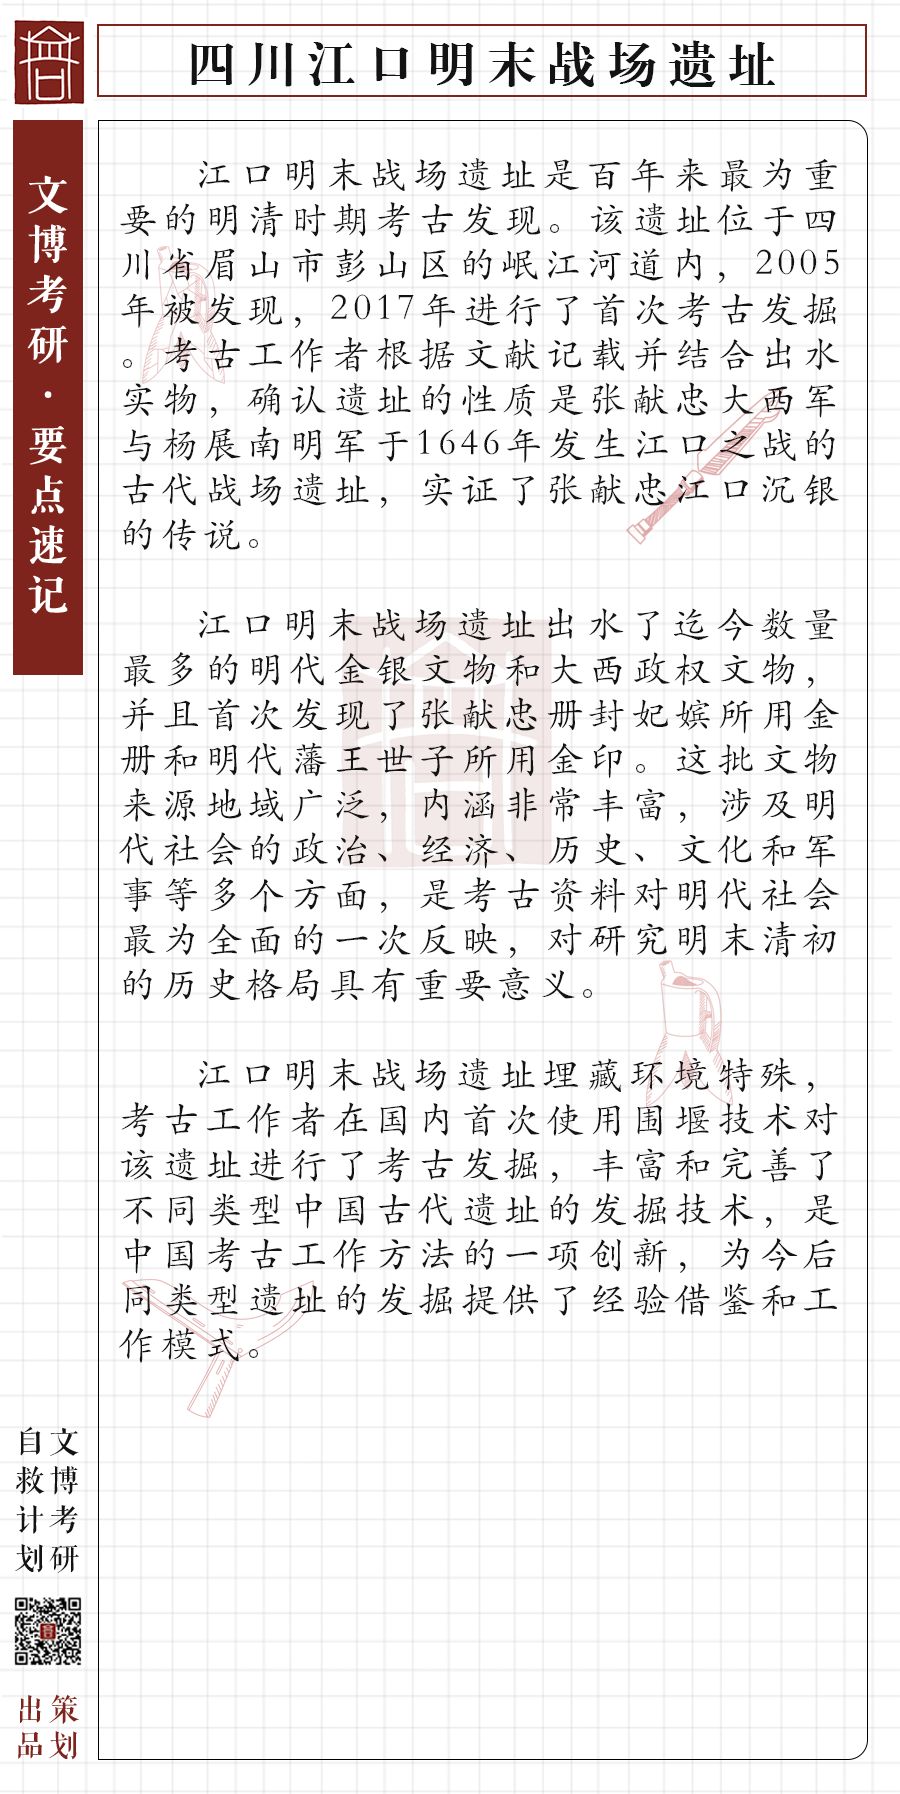 四川江口明末战场遗址
文博考研·要点速记
江口明末战场遗址是百年来最为重
要的明清时期考古发现。该遗址位于四
川省眉山市彭山区的岷江河道内，2005
年被发现，2017年进行了首次考古发掘
。考古工作者根据文献记载并结合出水
实物，确认遗址的性质是张献忠大西军
与杨展南明军于1646年发生江口之战的
古代战场遗址，实证了张献忠江口沉银
的传说。
江口明末战场遗址出水了迄今数量
最多的明代金银文物和大西政权文物，
并且首次发现了张献忠册封妃嫔所用金
册和明代藩王世子所用金印。这批文物
来源地域广泛，内涵非常丰富，涉及明
代社会的政治、经济、历史、文化和军
事等多个方面，是考古资料对明代社会
最为全面的一次反映，对研究明末清初
的历史格局具有重要意义。
江口明末战场遗址埋藏环境特殊，
考古工作者在国内首次使用围堰技术对
该遗址进行了考古发掘，丰富和完善了
不同类型中国古代遗址的发掘技术，是
中国考古工作方法的一项创新，为今后
同类型遗址的发掘提供了经验借鉴和工
作模式。
文博考研
自救计划
策划
出品